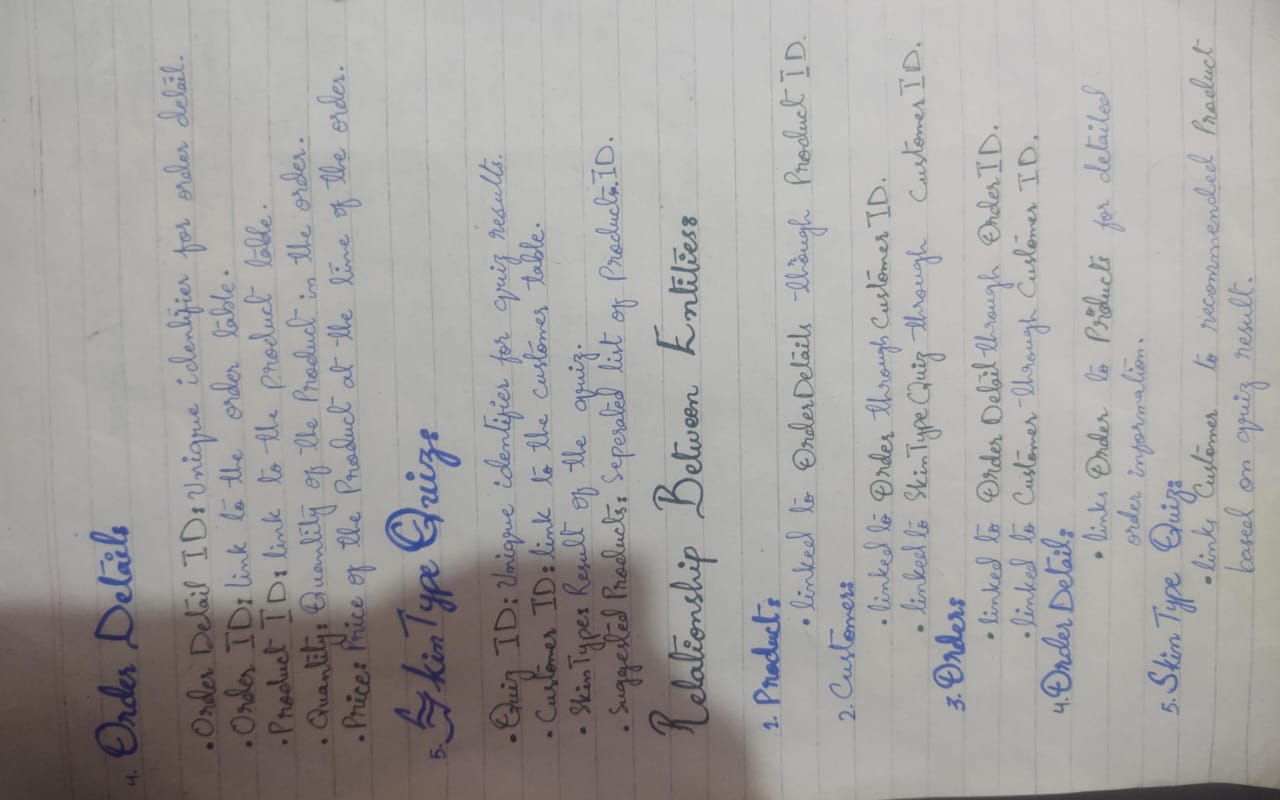 4. Order Details
• Order Detail ID: Unique identifier for order detail.
• Order ID: link to the order table.
• Product ID: link to the Product table.
• Quantity: Quantity of the Product in the order.
• Price: Price of the Product at the time of the order.
5. Skin Type Quiz:
• Quiz ID: Unique identifier for quiz results.
• Customer ID: link to the customer table.
• Skin Type: Result of the quiz.
• Suggested Products: Seperated list of Products ID.
Relationship Between Entities:
1. Product:
• linked to OrderDetails through Product ID.
2. Customer:
• linked to Order through Customer ID.
• linked to SkinTypeQuiz through Customer ID.
3. Orders:
• linked to Order Detail through Order ID.
• linked to Customer through Customer ID.
4. Order Detail:
• links Order to Products for detailed
order information.
5. Skin Type Quiz:
• links Customer to recommended Product
based on quiz result.